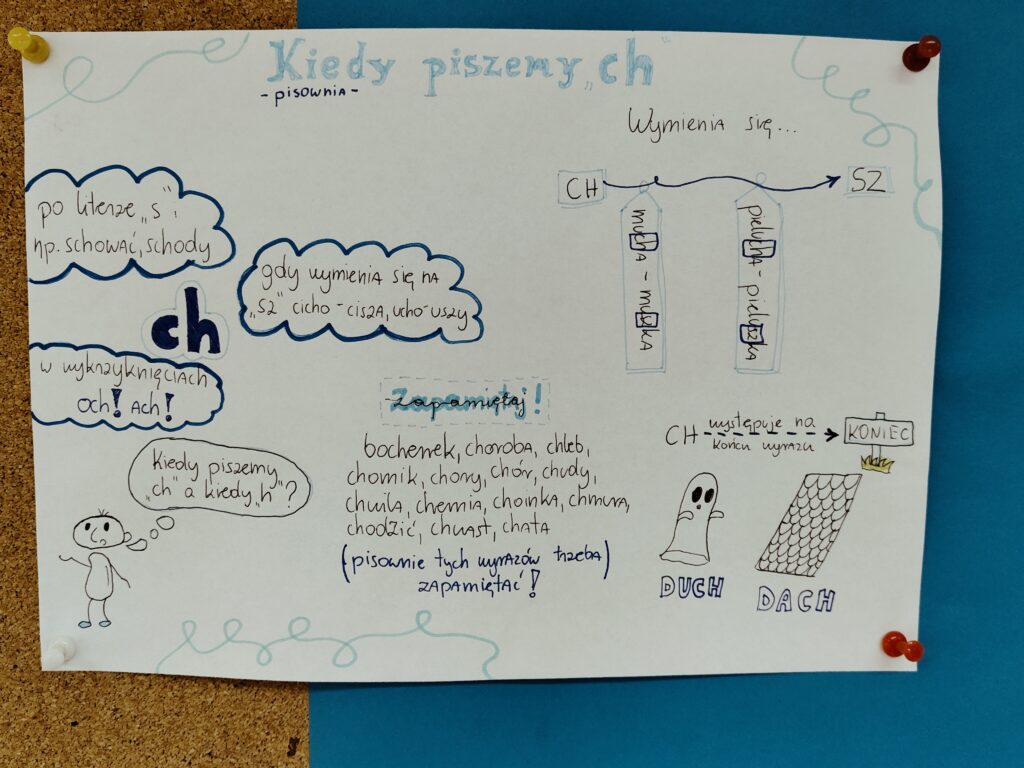 Kiedy piszemy „ch"
- pisownia -
Wymienia się...
CH
SZ
mucha - muszka
pielucha - pieluszka
po literze „s",
np. schować, schody
gdy wymienia się na
„sz" cicho - cisza, ucho - uszy
ch
w wykrzyknięciach
och! ach!
Zapamiętaj!
bochenek, choroba, chleb,
chomik, chory, chór, chudy,
chwila, chemia, choinka, chmura,
chodzić, chwast, chata
(pisownie tych wyrazów trzeba)
zapamiętać!
Kiedy piszemy
„ch" a kiedy „h"?
CH występuje na
końcu wyrazu
KONIEC
DUCH
DACH